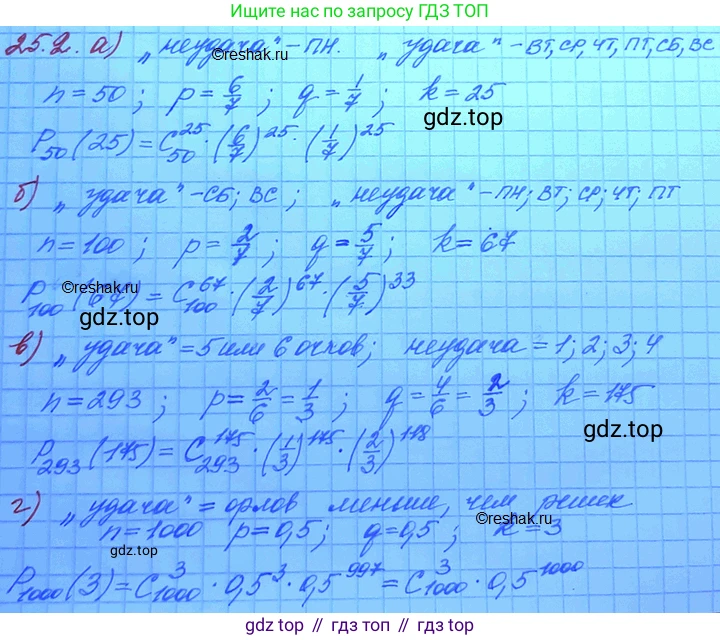 Ищите нас по запросу ГДЗ ТОП
25.2. а) „неудача“ – ПН. „удача“ – ВТ, СР, ЧТ, ПТ, СБ, ВС
©reshak.ru
n = 50; p = 6/7; q = 1/7; k = 25
gdz.top
P₅₀(25) = C₅₀²⁵ · (6/7)²⁵ · (1/7)²⁵
б) „удача“ – СБ; ВС; „неудача“ – ПН; ВТ; СР; ЧТ; ПТ
n = 100; p = 2/7; q = 5/7; k = 67
P₁₀₀(67) = C₁₀₀⁶⁷ · (2/7)⁶⁷ · (5/7)³³
©reshak.ru
gdz.top
в) „удача“ = 5 или 6 очков; неудача = 1; 2; 3; 4
n = 293; p = 2/6 = 1/3; q = 4/6 = 2/3; k = 175
gdz.top
P₂₉₃(175) = C₂₉₃¹⁷⁵ · (1/3)¹⁷⁵ · (2/3)¹¹⁸
г) „удача“ = орлов меньше, чем решек
©reshak.ru
n = 1000 p = 0,5; q = 0,5; k = 3
gdz.top
P₁₀₀₀(3) = C₁₀₀₀³ · 0,5³ · 0,5⁹⁹⁷ = C₁₀₀₀³ · 0,5¹⁰⁰⁰
gdz.top // гдз.топ // гдз.top